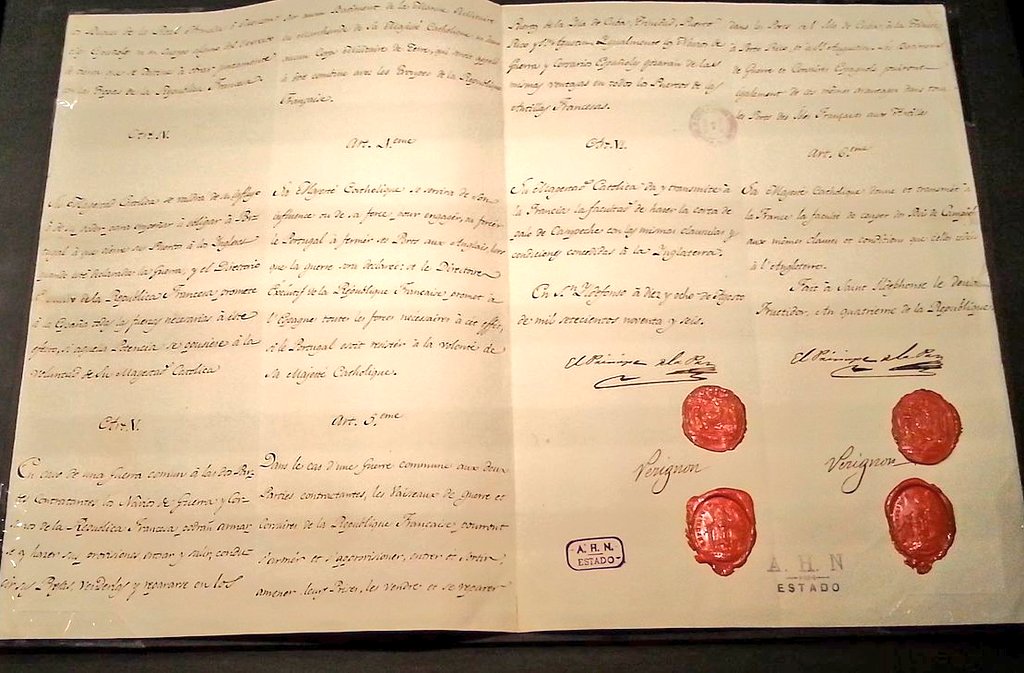 aucun Corps Auxiliaires de Terre, qui seront appellés
à être combinés avec les Troupes de la République
Française.
Art. IV.
Su Magestad Catolica se valdra de su influxo
ó de su poder para
tugal á que cierre sus Puertos á los Ingleses
quando esté declarada la Guerra, y el Directorio
de la Republica Francesa promete
á la España todas las fuerzas necesarias á este
efecto, si aquella Potencia se opusiere á la
voluntad de Su Magestad Catolica
Art. V.
En caso de una guerra comun á las dos Par-
tes Contratantes, los Navios de Guerra y Cor-
de la Republica Francesa, podran armar
y hazer sus provisiones entrar y salir, condu
sus Presas, venderlas y repararse en los
Art. 4.eme
Sa Majesté Catholique se servira de son
influence ou de sa force, pour engager, ou forcer
le Portugal à fermer ses Ports aux Anglais lors
que la guerre sera declarée: et le Directoire
Exécutif de la République Française promet à
l'Espagne toutes les forces necessaires à cet effet,
si le Portugal osait resister à la volonté de
Sa Majesté Catholique.
Art. 5.eme
Dans le cas d'une Guerre commune aux deux
Parties contractantes, les Vaisseaux de guerre et
Corsaires de la République Française pourront
s'armer et s'approvisioner, entrer et sortir,
amener leurs Prises, les vendre et se reparer
Puerto de la Isla de Cuba, Trinidad, Puerto
Rico y Sn. Agustin. Igualmente los Navios de
Guerra y Corsarios Españoles gozaran de las
mismas ventajas en todos los Puertos de las
Antillas Francesas.
Art. VI.
Su Magestad Catolica da y transmite á
la Francia la facultad de hacer la corta de
palo de Campeche con las mismas clausulas y
condiciones concedidas á la Inglaterra.
En Sn. Ildefonso á diez y ocho de Agosto
de mil setecientos noventa y seis.
El Principe de la Paz
Verignon
A. H. N.
ESTADO
dans les Ports de l'Isle de Cuba, à la Trinité,
à Porto Rico, et à St. Augustin. Les Vaisseaux
de Guerre et Corsaires Espagnols jouiront
également de ces mêmes avantages dans tous
les Ports des Isles Françaises aux Antilles
Art. 6.eme
Sa Majesté Catholique donne et transmet à
la France la faculté de couper des Bois de Campêche
aux mêmes clauses et conditions que celles cedées
à l'Angleterre.
Fait à Saint Ildephonse le Deux
Fructidor, An quatrieme de la Republique
El Principe de la Paz
Verignon
A. H. N
ESTADO